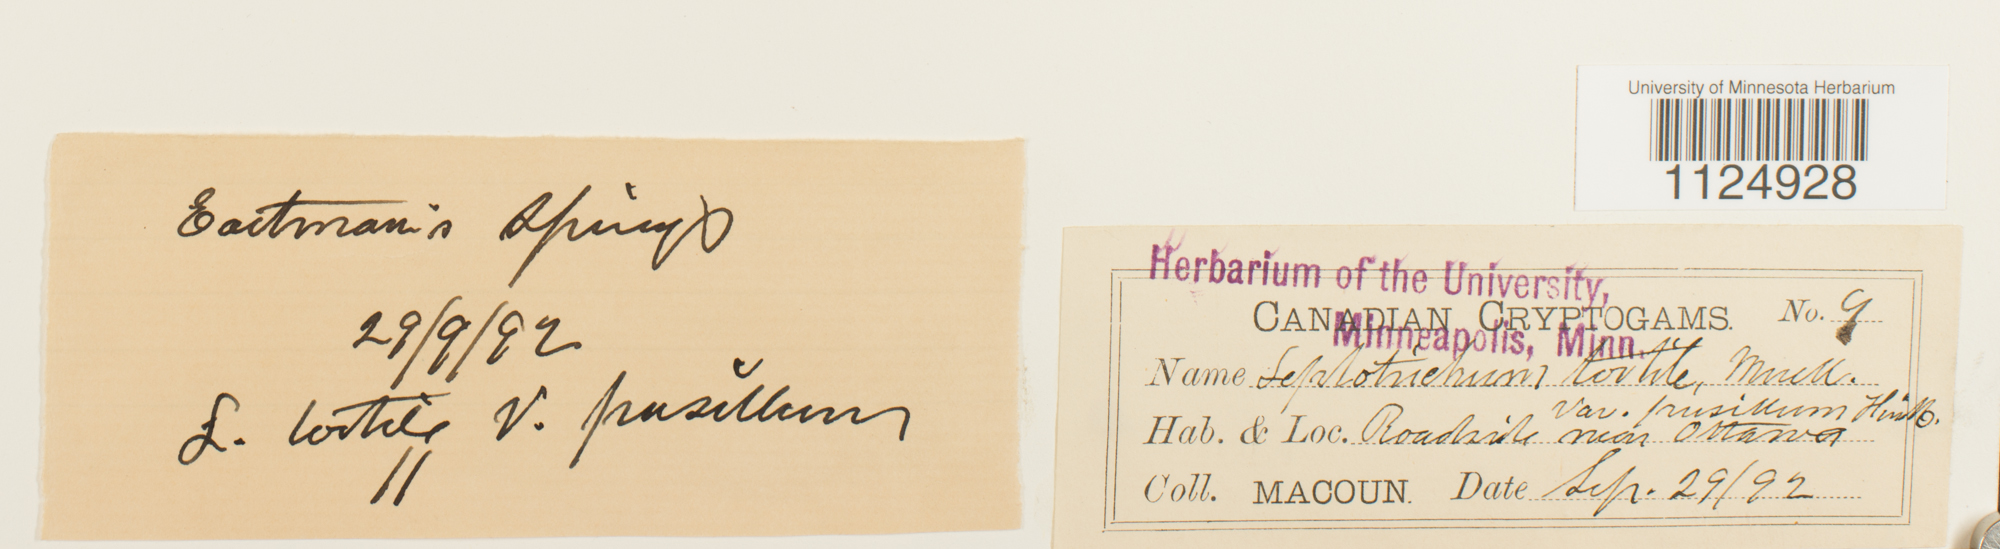 Eastman's Springs
29/9/92
L. tortile V. pusillum
11
University of Minnesota Herbarium
1124928
Herbarium of the University,
Minneapolis, Minn.
CANADIAN CRYPTOGAMS. No. 9
Name Leptotrichum tortile, Muell.
Var. pusillum
Hab. & Loc. Roadside near Ottawa
Coll. MACOUN. Date Sep. 29/92